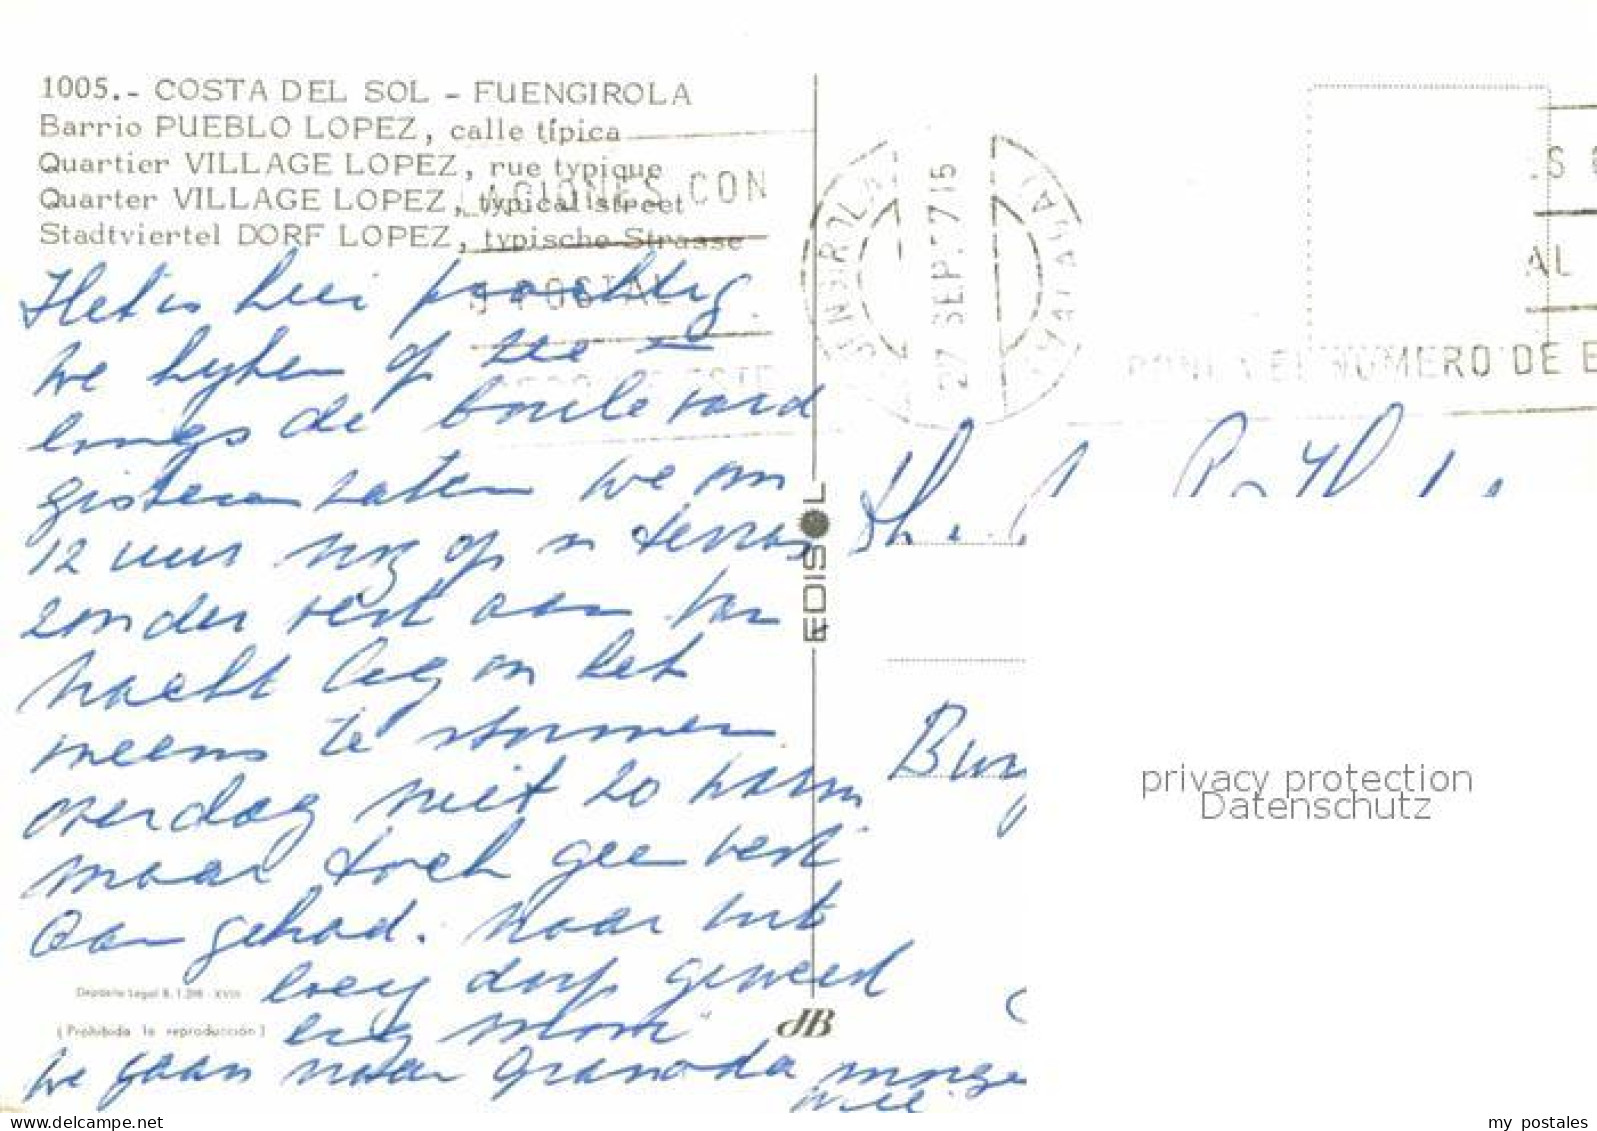 1005.- COSTA DEL SOL - FUENGIROLA
Barrio PUEBLO LOPEZ, calle típica
Quartier VILLAGE LOPEZ, rue typique
Quarter VILLAGE LOPEZ, typical street
Stadtviertel DORF LOPEZ, typische Strasse
CON
POSTAL
27 SEP.
AL
NUMERO DE
Het is hier prachtig.
We kyken op zee
langs de boulevard
gisteren zaten we om
12 uur nog op n terras
zonder vest aan van
nacht leg on het
ineens te stormen
overdag niet zo warm
maar toch geen vest
aan gehad. Naar wit
dorp geweest
erg mooi
We gaan naar Granada morge
EDISOL
Depósito Legal B. 1.296 - XVIII
(Prohibida la reproducción)
dB
privacy protection
Datenschutz
delcampe.net
my_postales